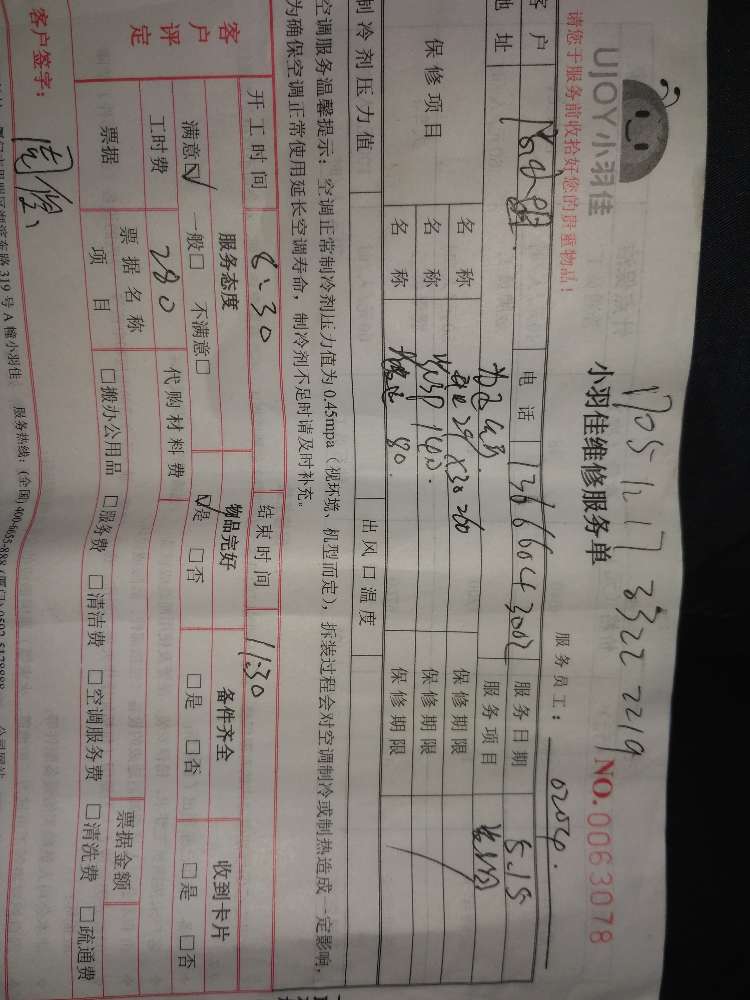 UJOY小羽佳
1705 1217 3322 2219
小羽佳维修服务单
NO.0063078
请您于服务前收拾好您的贵重物品！
服务员工：0204
客户 电话 服务日期 5.15
地址 服务项目
保修项目 名称 保修期限
名称 保修期限
名称 80 保修期限
制冷剂压力值 出风口温度
空调服务温馨提示：空调正常制冷剂压力值为 0.45mpa（视环境、机型而定），拆装过程会对空调制冷或制热造成一定影响，
为确保空调正常使用延长空调寿命，制冷剂不足时请及时补充。
开工时间 8:30 结束时间 11:30
客户评定 服务态度 物品完好 备件齐全 收到卡片
满意☑ 一般□ 不满意□ ☑是 □否 □是 □否 □是 □否
工时费 280 代购材料费
票据 票据名称 票据金额
项目 □搬办公用品 □服务费 □清洁费 □空调服务费 □清洗费 □疏通费
客户签字：
319号A幢小羽佳 服务热线：(全国)